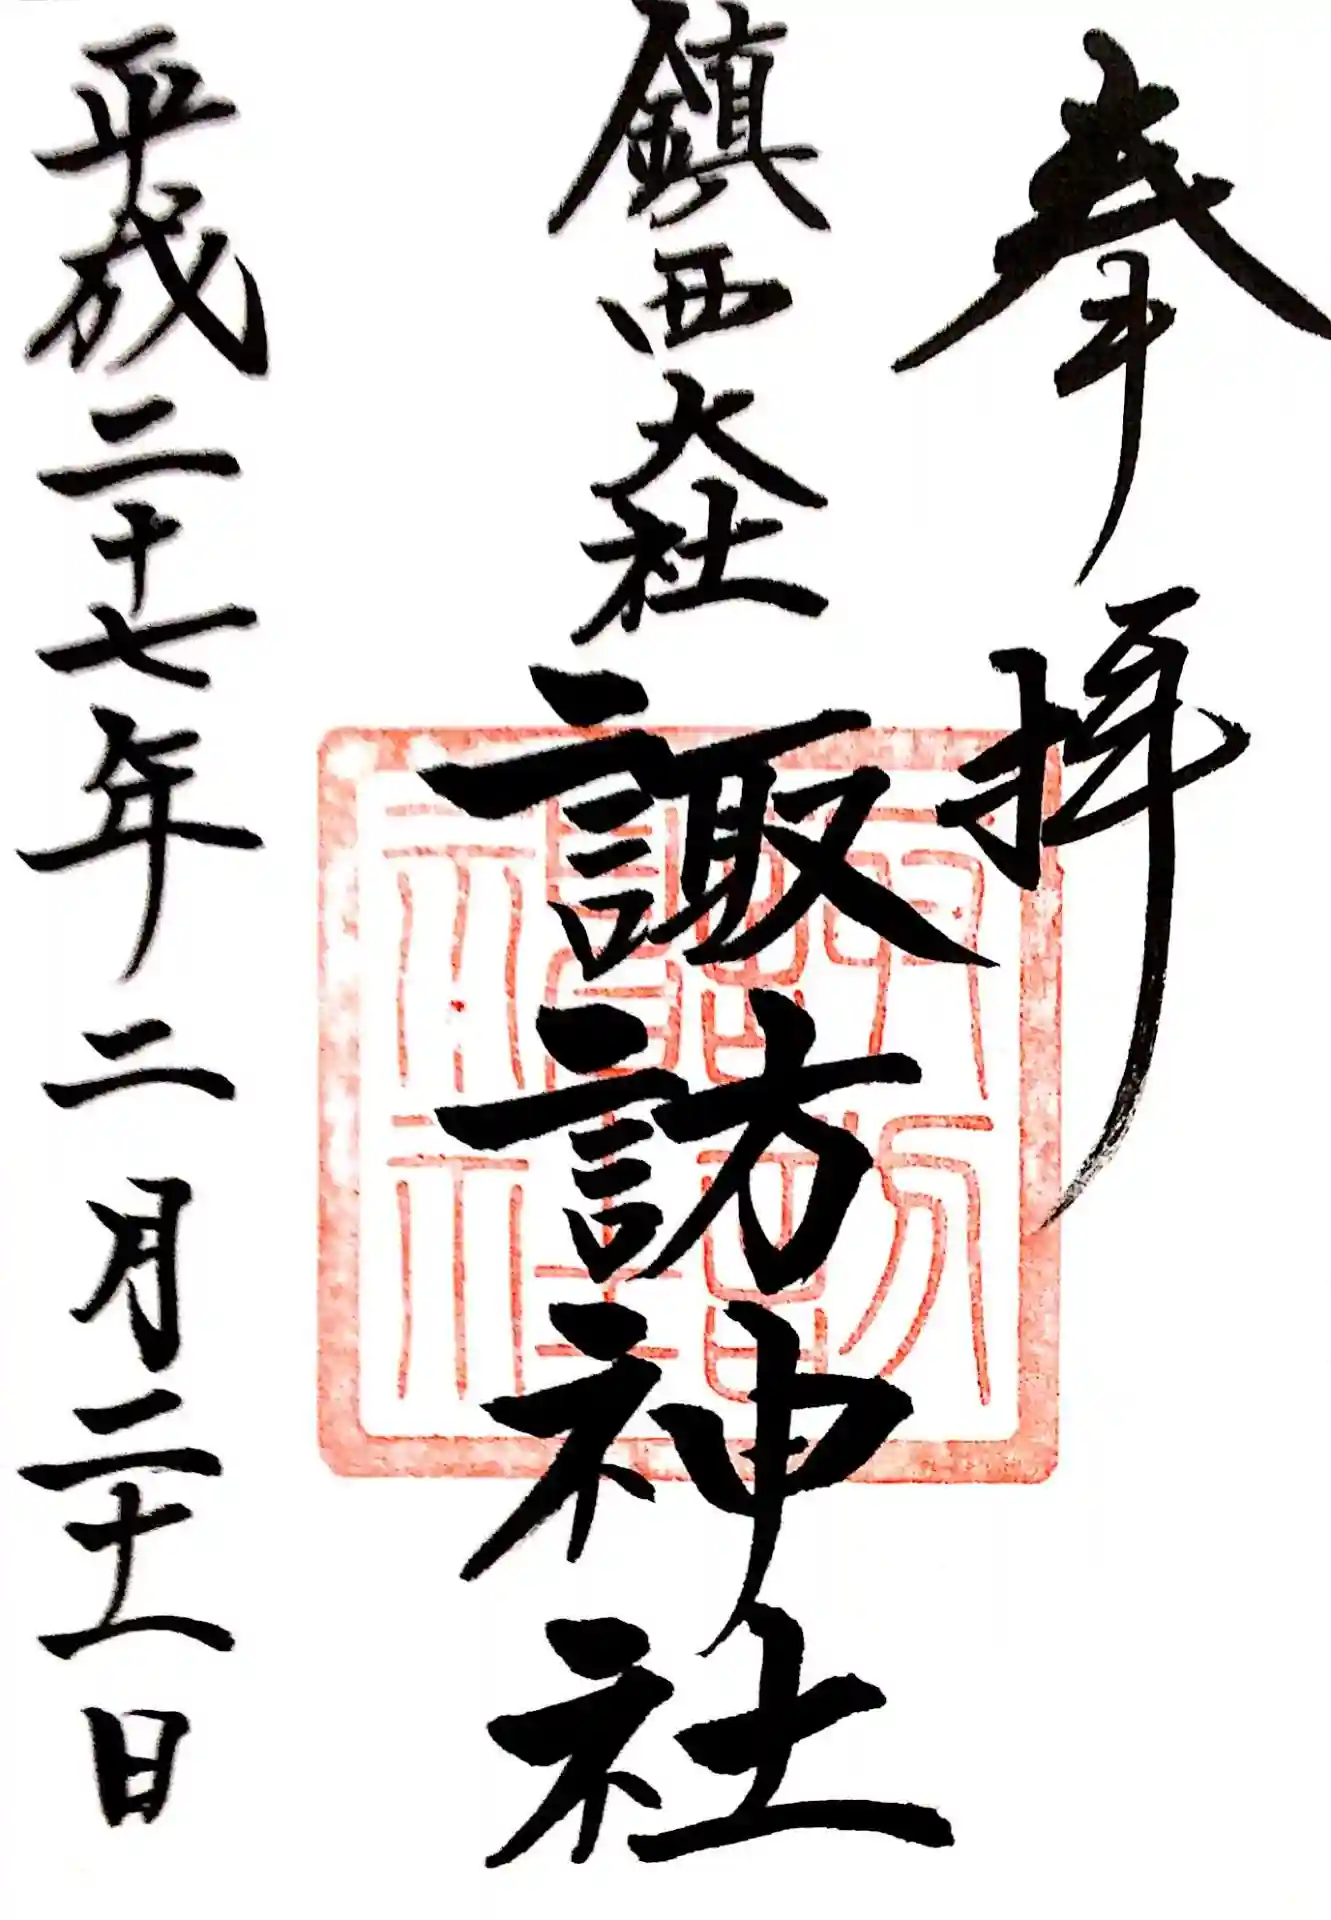 奉拝
鎮西大社諏訪神社
平成二十七年二月二十一日
諏訪
神社